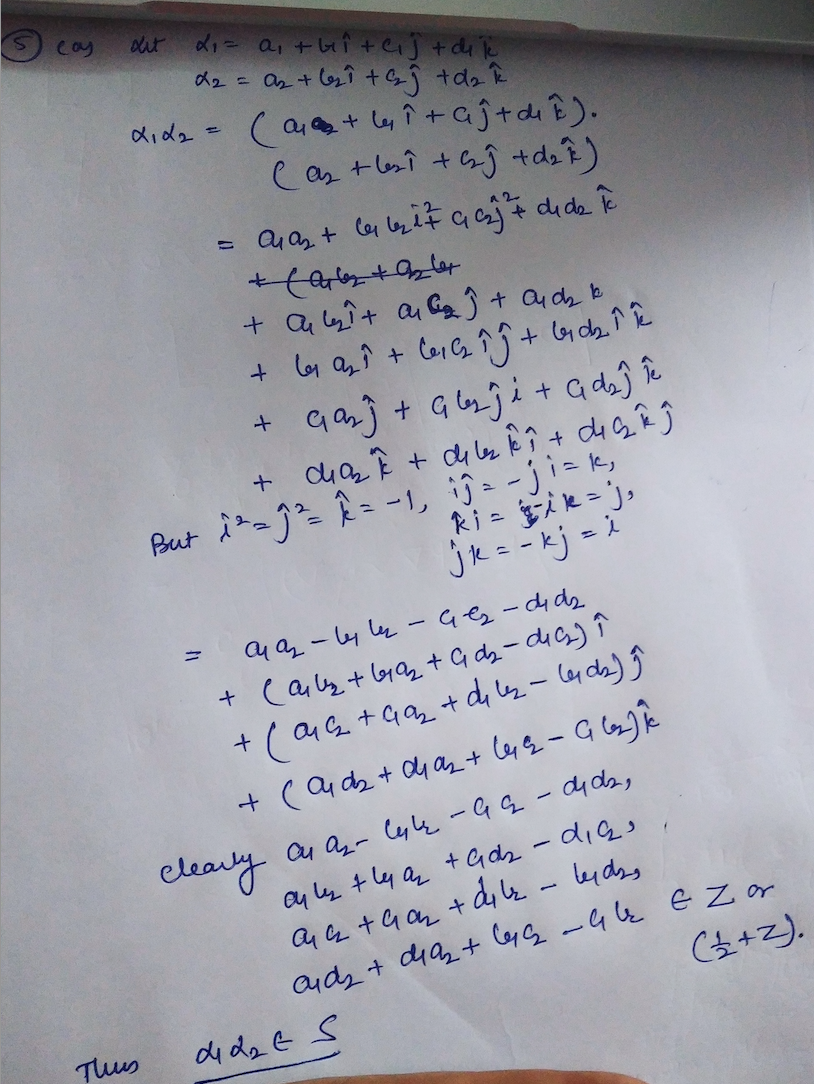 ⑤ (a) Let α₁ = a₁ + b₁î + c₁ĵ + d₁k̂
α₂ = a₂ + b₂î + c₂ĵ + d₂k̂
α₁α₂ = (a₁ + b₁î + c₁ĵ + d₁k̂).
(a₂ + b₂î + c₂ĵ + d₂k̂)
= a₁a₂ + b₁b₂î² + c₁c₂ĵ² + d₁d₂k̂
+ (a₁b₂ + a₂b₁
+ a₁b₂î + a₁c₂ĵ + a₁d₂k
+ b₁a₂î + b₁c₂îĵ + b₁d₂îk̂
+ c₁a₂ĵ + c₁b₂ĵi + c₁d₂ĵk̂
+ d₁a₂k̂ + d₁b₂k̂î + d₁c₂k̂ĵ
But î² = ĵ² = k̂ = -1, iĵ = -ji = k,
ki = -ik = j,
jk = -kj = i
= a₁a₂ - b₁b₂ - c₁c₂ - d₁d₂
+ (a₁b₂ + b₁a₂ + c₁d₂ - d₁c₂)î
+ (a₁c₂ + c₁a₂ + d₁b₂ - b₁d₂)ĵ
+ (a₁d₂ + d₁a₂ + b₁c₂ - c₁b₂)k̂
clearly a₁a₂ - b₁b₂ - c₁c₂ - d₁d₂,
a₁b₂ + b₁a₂ + c₁d₂ - d₁c₂,
a₁c₂ + c₁a₂ + d₁b₂ - b₁d₂,
a₁d₂ + d₁a₂ + b₁c₂ - c₁b₂ ∈ Z or
(½+Z).
Thus α₁α₂ ∈ S